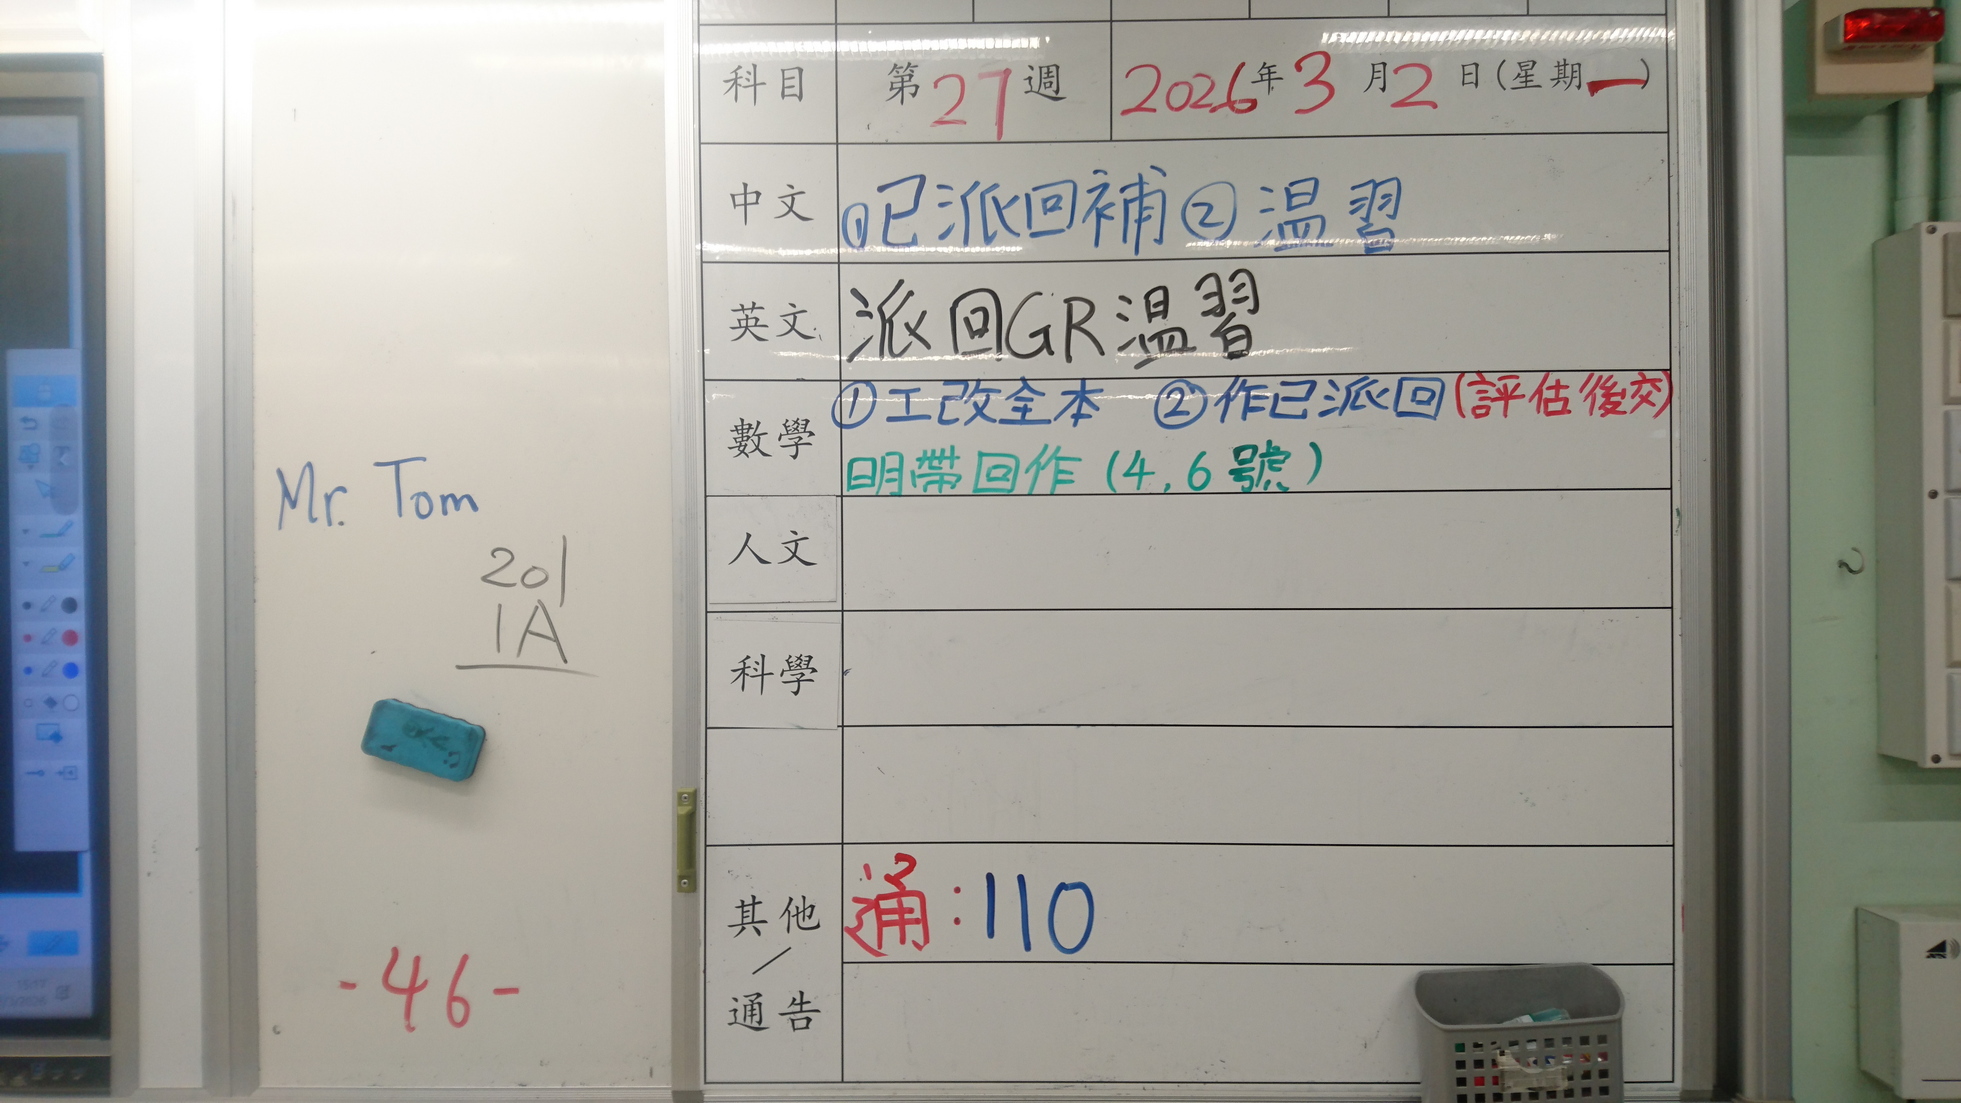 Mr. Tom
201
1A
-46-
科目 第27週 2026年3月2日(星期一)
中文 ①已派回補②温習
英文 派回GR温習
數學 ①工改全本 ②作已派回(評估後交)
明帶回作(4,6號)
人文
科學
其他/通告 通:110